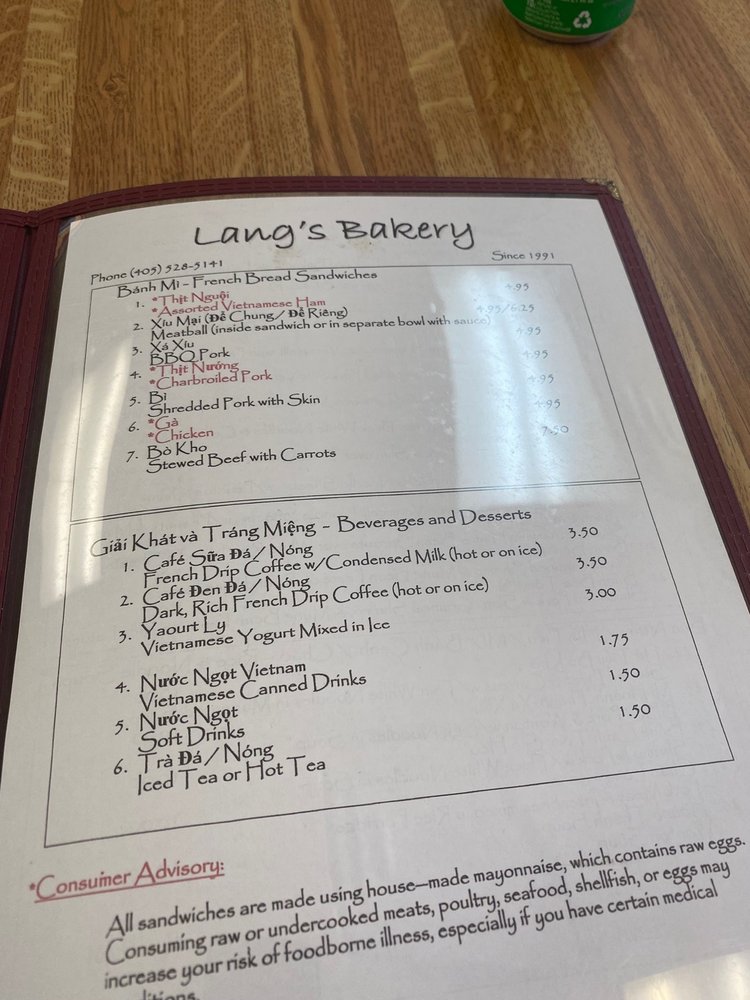 Lang's Bakery
Phone (405) 528-5141
Since 1991
Bánh Mì - French Bread Sandwiches
1. *Thịt Nguội 4.95
*Assorted Vietnamese Ham
2. Xíu Mại (Để Chung / Để Riêng) 4.95/6.25
Meatball (inside sandwich or in separate bowl with sauce)
3. Xá Xíu 4.95
BBQ Pork
4. *Thịt Nướng 4.95
*Charbroiled Pork
5. Bì 4.95
Shredded Pork with Skin
6. *Gà 4.95
*Chicken
7. Bò Kho 7.50
Stewed Beef with Carrots
Giải Khát và Tráng Miệng - Beverages and Desserts
1. Café Sữa Đá / Nóng 3.50
French Drip Coffee w/Condensed Milk (hot or on ice)
2. Café Đen Đá / Nóng 3.50
Dark, Rich French Drip Coffee (hot or on ice)
3. Yaourt Ly 3.00
Vietnamese Yogurt Mixed in Ice
4. Nước Ngọt Vietnam 1.75
Vietnamese Canned Drinks
5. Nước Ngọt 1.50
Soft Drinks
6. Trà Đá / Nóng 1.50
Iced Tea or Hot Tea
*Consumer Advisory:
All sandwiches are made using house-made mayonnaise, which contains raw eggs.
Consuming raw or undercooked meats, poultry, seafood, shellfish, or eggs may
increase your risk of foodborne illness, especially if you have certain medical